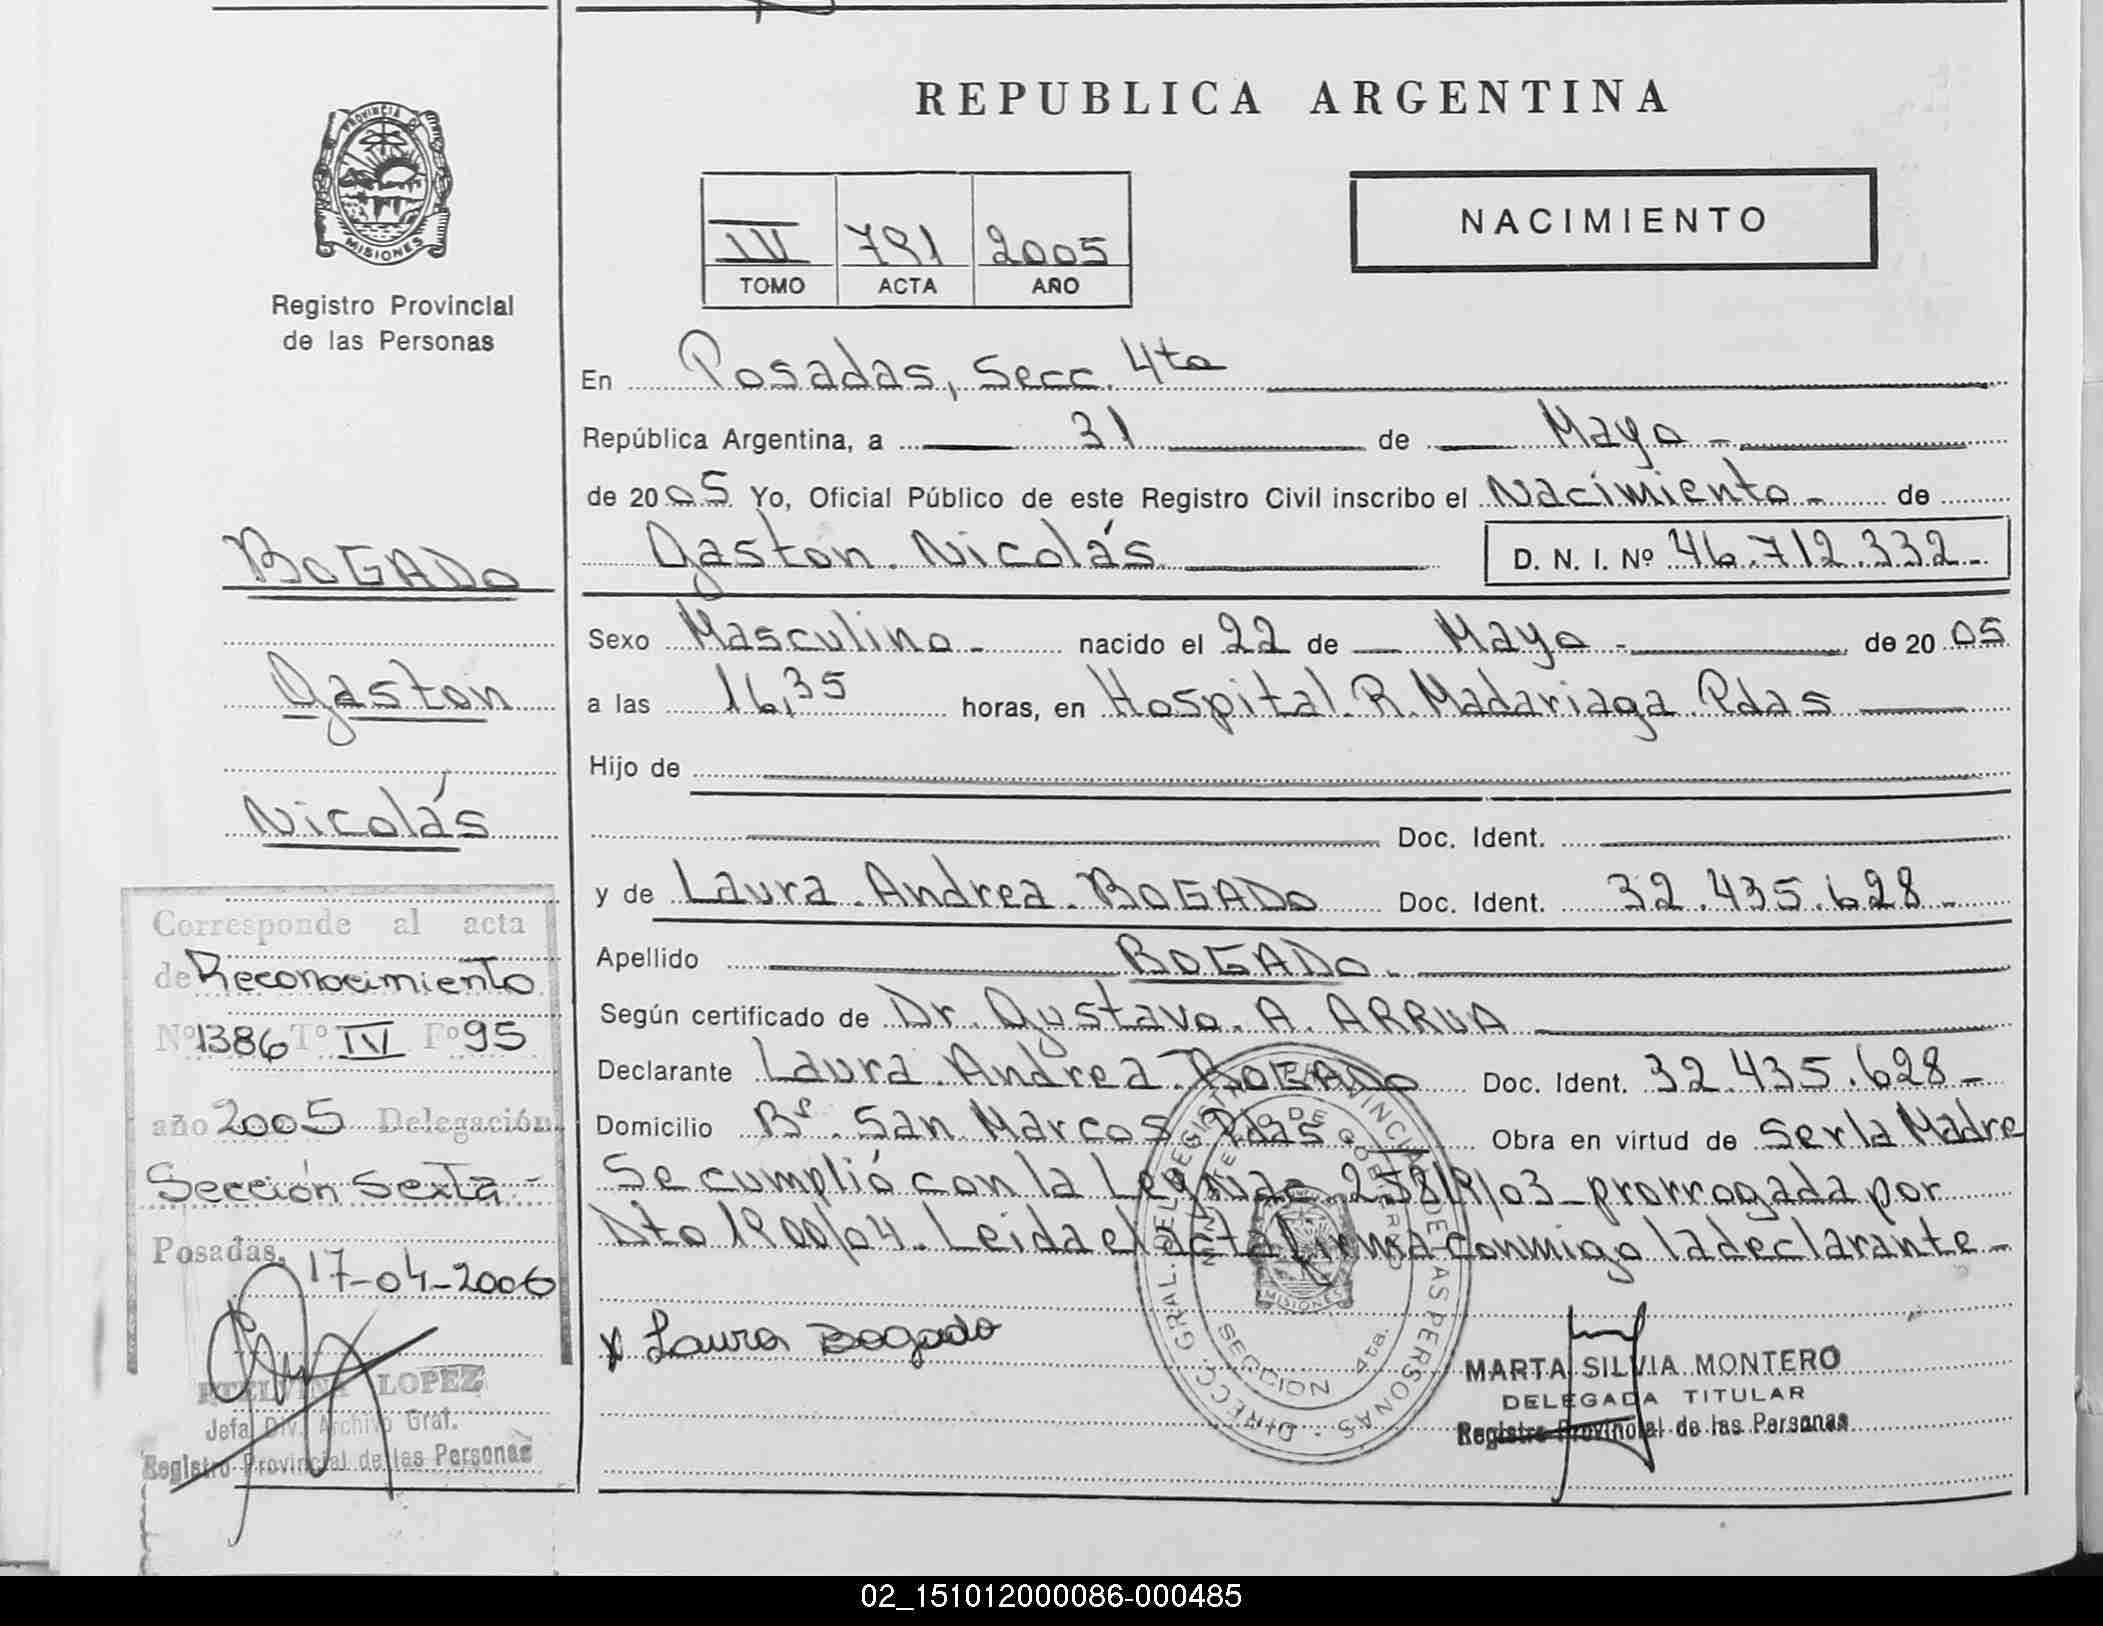 REPUBLICA ARGENTINA
PROVINCIA DE
MISIONES
Registro Provincial
de las Personas
NACIMIENTO
IV 791 2005
TOMO ACTA AÑO
En Posadas, Secc. 4ta
República Argentina, a 31 de Mayo -
de 2005 Yo, Oficial Público de este Registro Civil inscribo el Nacimiento - de
Gastón Nicolás D. N. I. Nº 46.712.332 -
Sexo Masculino - nacido el 22 de Mayo - de 2005
a las 16,35 horas, en Hospital R. Madariaga Pdas
Hijo de
Doc. Ident.
y de Laura Andrea BOGADO Doc. Ident. 32.435.628 -
Apellido BOGADO -
Según certificado de Dr. Gustavo A. ARRUA
Declarante Laura Andrea BOGADO Doc. Ident. 32.435.628 -
Domicilio Bº San Marcos Pdas - Obra en virtud de Ser la Madre
Se cumplió con la Ley Nac. 25819/03 - prorrogada por
Dto 1900/04. Leida el acta firma conmigo la declarante -
x Laura Bogado
MARTA SILVIA MONTERO
DELEGADA TITULAR
Registro Provincial de las Personas
DIRECC. GRAL. DEL REGISTRO PROVINCIAL DE LAS PERSONAS
MINISTERIO DE GOBIERNO
MISIONES
SECCION 4ta.
BOGADO
Gaston
Nicolás
Corresponde al acta
de Reconocimiento
Nº 1386 Tº IV Fº 95
año 2005 Delegación
Sección Sexta -
Posadas, 17-04-2006
LOPEZ
Jefa Div. Archivo Gral.
Registro Provincial de las Personas
02_151012000086-000485